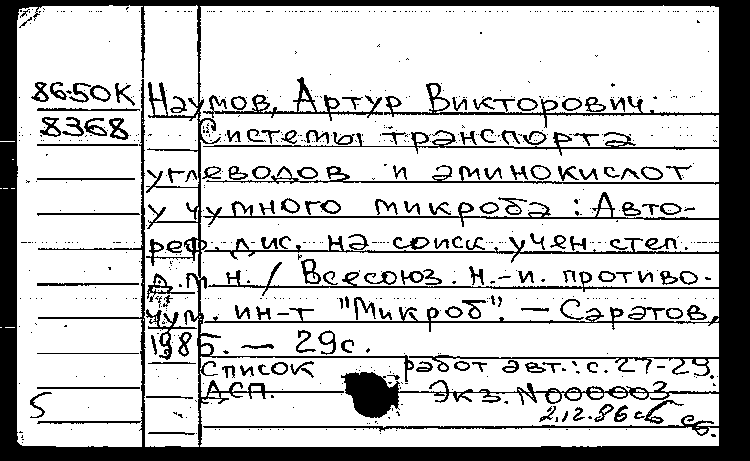 86-50К Наумов, Артур Викторович.
8368 Системы транспорта
углеводов и аминокислот
у чумного микроба : Авто-
реф. дис. на соиск. учен. степ.
д.м.н. / Всесоюз. н.-и. противо-
чум. ин-т "Микроб". — Саратов,
1986. — 29с.
Список работ авт.: с. 27-29.
ДСП. Экз. N000003
2.12.86 сб.
S